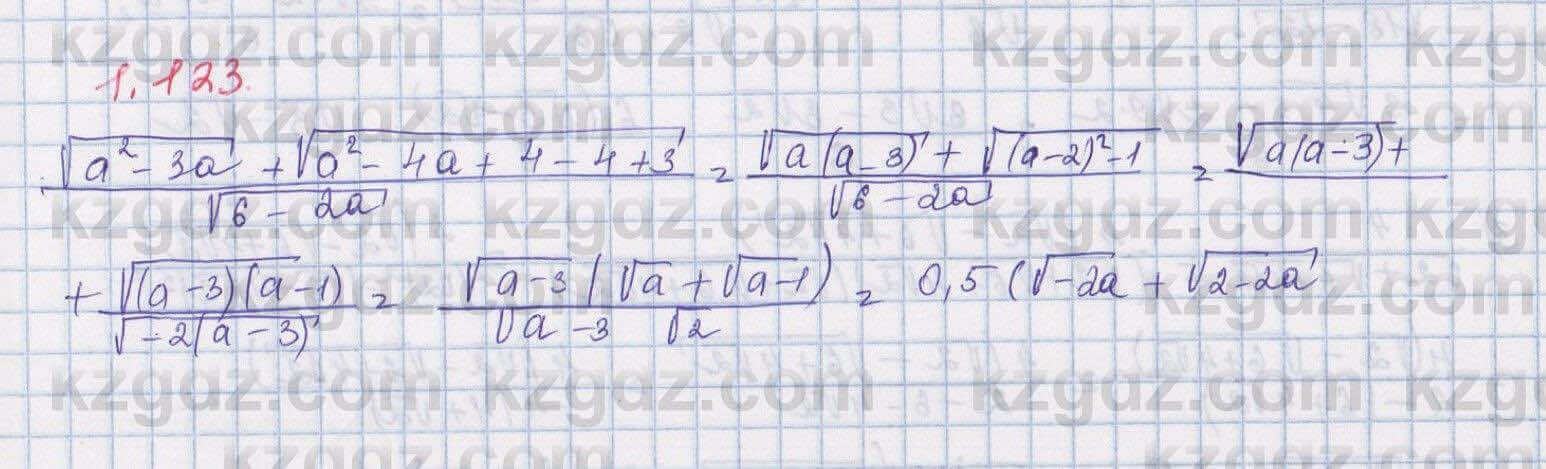 kzgdz.com kzgdz.com kzgdz.com kzgdz.com
1.123.
√(a² - 3a) + √(a² - 4a + 4 - 4 + 3) / √(6 - 2a) = √(a(a - 3)) + √((a-2)² - 1) / √(6 - 2a) = √(a(a - 3)) +
+ √((a - 3)(a - 1)) / √(-2(a - 3)) = √(a - 3) (√a + √(a - 1)) / √(a - 3) √2 = 0,5 (√(-2a) + √(2 - 2a)
kzgdz.com kzgdz.com kzgdz.com kzgdz.com